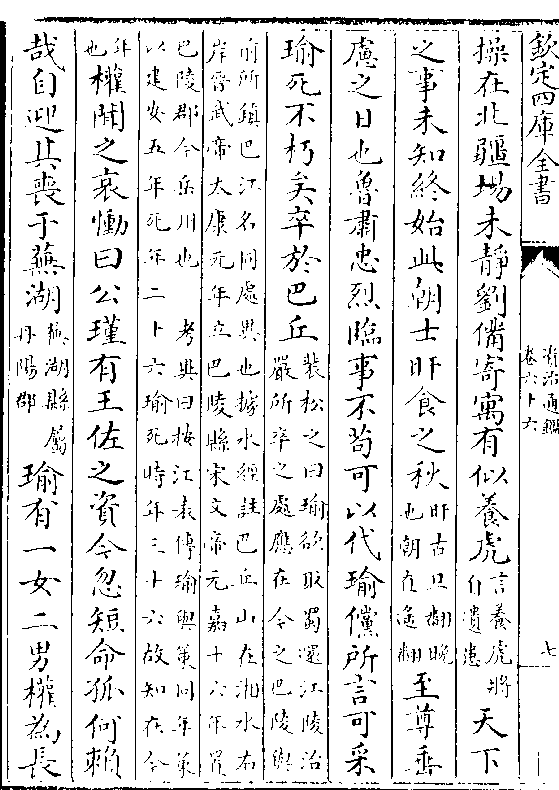 欽定四庫全書
資治通鑑
卷六十六
七
操在北疆埸未靜劉備寄寓有似養虎言養虎將自遺患天下
之事未知終始此朝士旰食之秋旰古旦翻晚也朝直遙翻至尊垂
慮之日也魯肅忠烈臨事不苟可以代瑜儻所言可采
瑜死不朽矣卒於巴丘裴松之曰瑜欲取蜀還江陵治嚴所卒之處應在今之巴陵與
前所鎮巴江名同處異也據水經註巴丘山在湘水右
岸晉武帝太康元年立巴陵縣宋文帝元嘉十六年置
巴陵郡今岳州也 考異曰按江表傳瑜與策同年策
以建安五年死年二十六瑜死時年三十六故知在今
年也權聞之哀慟曰公瑾有王佐之資今忽短命孤何賴
哉自迎其喪于蕪湖蕪湖縣屬丹陽郡瑜有一女二男權為長